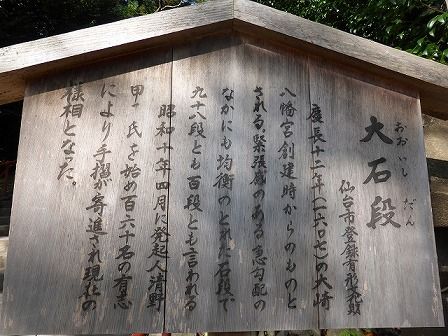 大石段
おおいし だん
仙台市登録有形文化財
慶長十二年(一六〇七)の大崎
八幡宮創建時からのものと
される。緊張感のある急勾配の
なかにも均衡のとれた石段で
九十八段とも百段とも言われる
昭和十年四月に発起人清野
甲一氏を始め百六十名の有志
により手摺が寄進され現在の
様相となった。